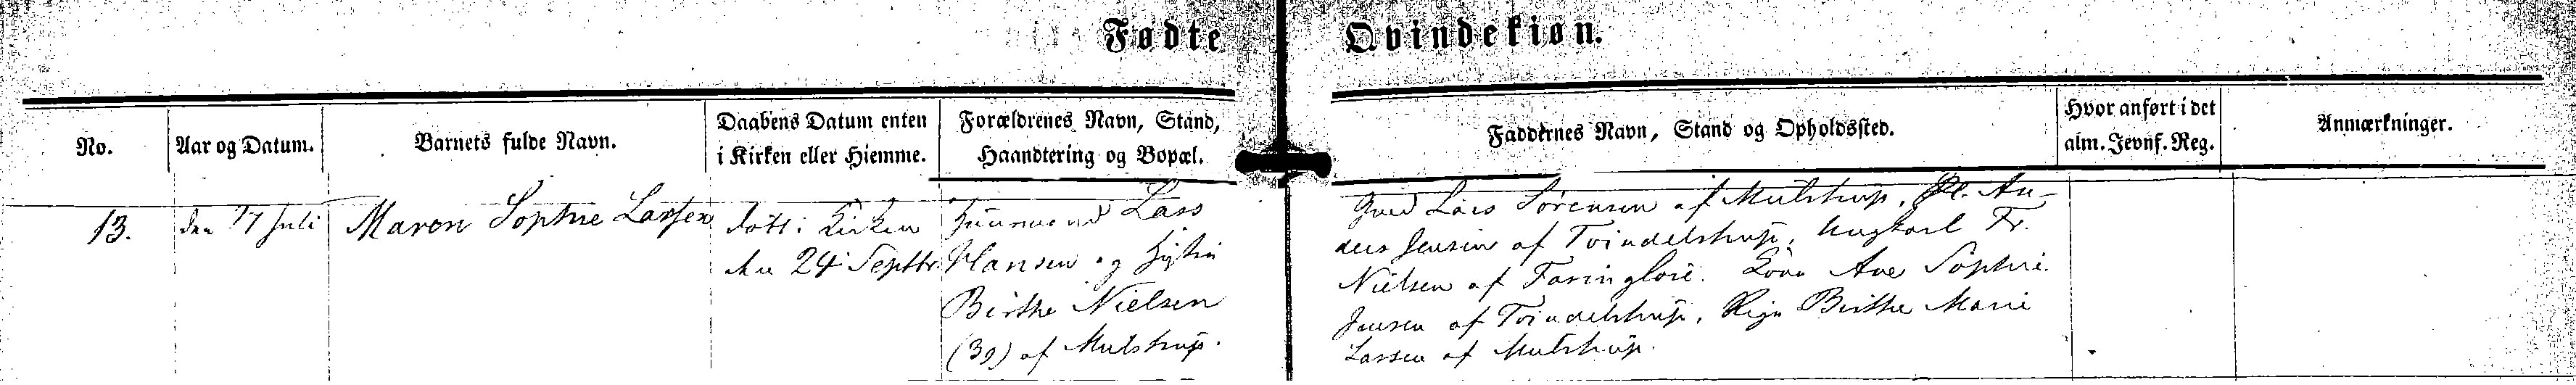 Fødte Qvindekiøn.
No.
Aar og Datum.
Barnets fulde Navn.
Daabens Datum enten
i Kirken eller Hiemme.
Forældrenes Navn, Stand,
Haandtering og Bopæl.
Faddernes Navn, Stand og Opholdssted.
Hvor anført i det
alm. Jevnf. Reg.
Anmærkninger.
13.
den 17 Juli
Maren Sophie Lassen
døbt i Kirken
den 24 Septbr
Huusmand Lars
Hansen og Hustru
Birthe Nielsen
(39) af Mulstrup.
Gmd Lars Sørensen af Mulstrup, An-
ders Jensen af Tvindelstrup, Ungkarl Fr.
Nielsen af Farringløse. Kone Ane Sophie
Jensen af Tvindelstrup, Pige Birthe Marie
Lassen af Mulstrup.